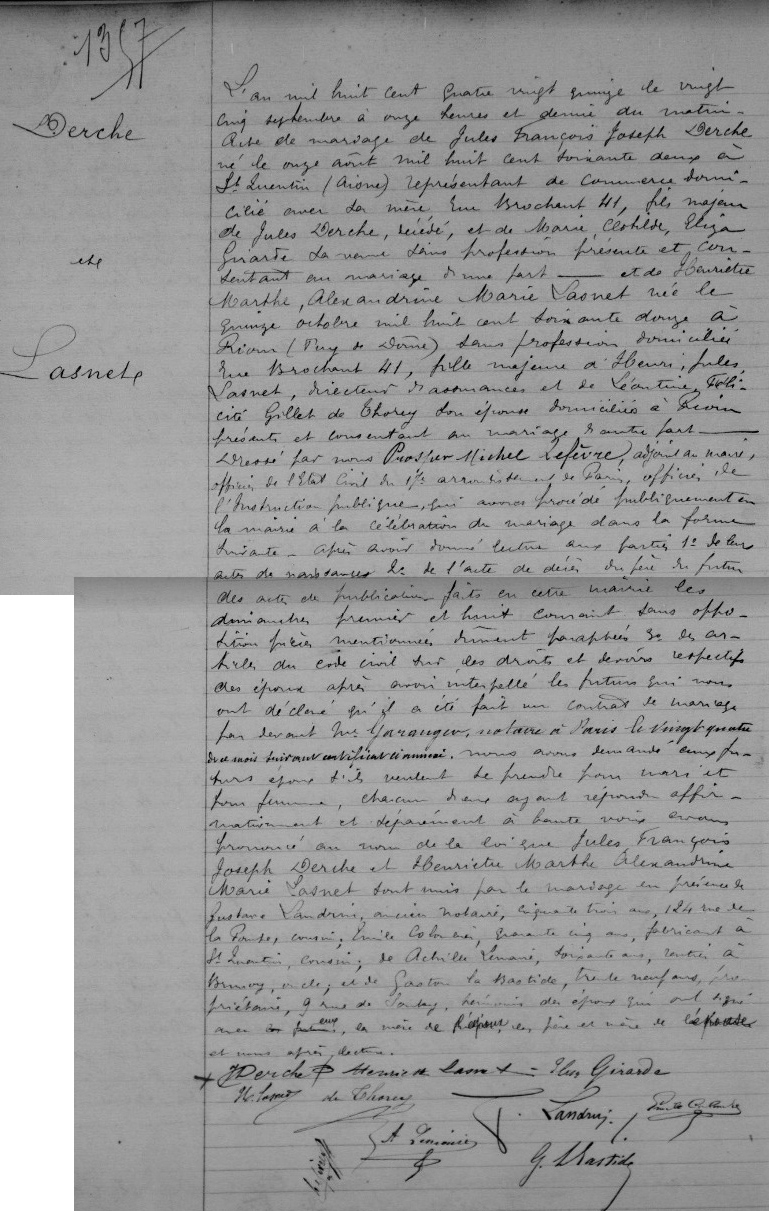 1357
Derche
et
Lasnet
L'an mil huit cent quatre vingt quinze le vingt
cinq septembre à onze heures et demie du matin -
Acte de mariage de Jules François Joseph Derche
né le onze août mil huit cent soixante deux à
St Quentin (Aisne) représentant de commerce domi-
cilié avec sa mère rue Brochant 41, fils majeur
de Jules Derche, décédé, et de Marie, Clotilde, Eliza
Girarde sa veuve sans profession présente et con-
sentant au mariage d'une part — et de Henriette
Marthe, Alexandrine Marie Lasnet née le
quinze octobre mil huit cent soixante douze à
Riom (Puy de Dôme) sans profession domiciliée
rue Brochant 41, fille majeure d'Henri, Jules
Lasnet, directeur d'assurances et de Léontine, Féli-
cité Gillet de Thorey son épouse domiciliés à Riom
présents et consentant au mariage d'autre part —
Dressé par nous Prosper Michel Lefèvre, adjoint au maire,
officier de l'Etat Civil du 17e arrondissement de Paris, officier de
l'Instruction publique, qui avons procédé publiquement en
la mairie à la célébration du mariage dans la forme
suivante - après avoir donné lecture aux parties 1o de leurs
actes de naissances 2o de l'acte de décès du père du futur
des actes de publication faits en cette mairie les
dimanches premier et huit courant sans oppo-
sition pièces mentionnées dûment paraphées 3o des ar-
ticles du code civil sur les droits et devoirs respectifs
des époux après avoir interpellé les futurs qui nous
ont déclaré qu'il a été fait un contrat de mariage
par devant Me notaire à Paris le vingt quatre
de ce mois suivant certificat ci annexé. nous avons demandé aux fu-
turs époux s'ils veulent se prendre pour mari et
pour femme, chacun d'eux ayant répondu affir-
mativement et séparément à haute voix avons
prononcé au nom de la loi que Jules, François
Joseph Derche et Henriette Marthe Alexandrine
Marie Lasnet sont unis par le mariage en présence de
Gustave Landrin, ancien notaire, cinquante trois ans, 124 rue de
la Pompe, cousin; Emile quarante cinq ans, fabricant à
St Quentin, cousin; de Achille soixante ans, rentier à
Brunoy, oncle; et de Gaston La Bastide, trente neuf ans, pro
priétaire, 9 rue de témoins des époux qui ont signé
avec eux, la mère de l'époux, les père et mère de l'épouse
et nous après lecture.
JDerche Henriette Lasnet - Eliza Girarde
H. Lasnet de Thorey
G. Landrin
A
G. LBastide